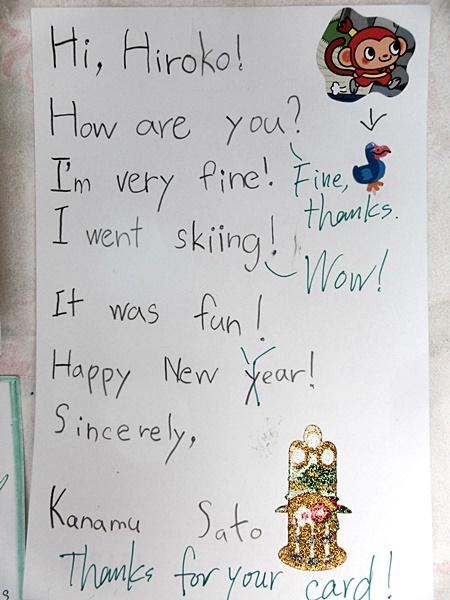 Hi, Hiroko!
How are you?
I'm very fine! Fine,
thanks.
I went skiing!
Wow!
It was fun!
Happy New Year!
Sincerely,
Kanamu Sato
Thanks for your card!